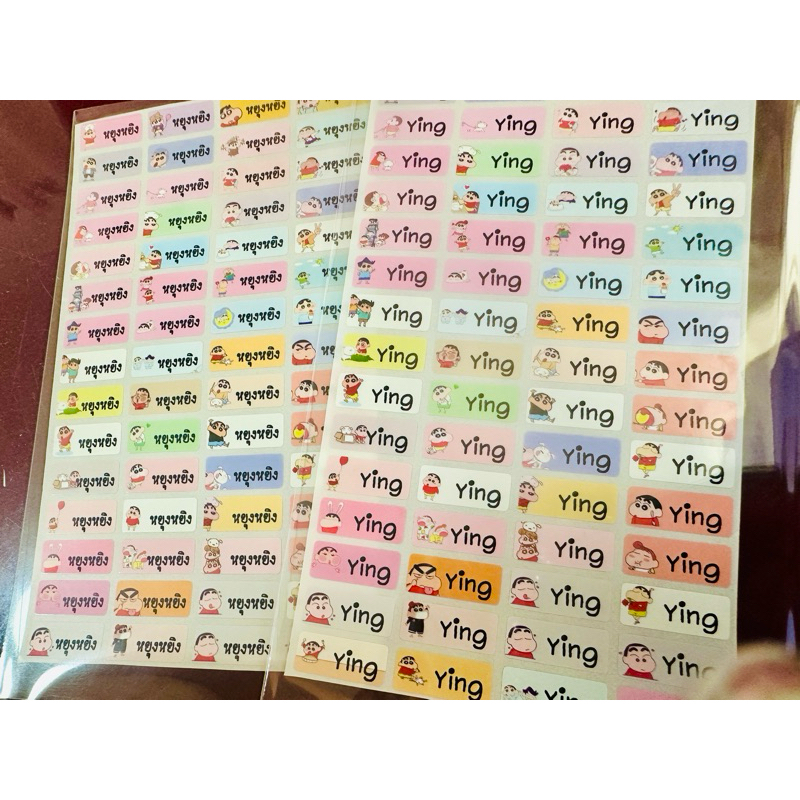 หยุงหยิง หยุงหยิง หยุงหยิง
หยุงหยิง หยุงหยิง หยุงหยิง
หยุงหยิง หยุงหยิง หยุงหยิง
หยุงหยิง หยุงหยิง หยุงหยิง
หยุงหยิง หยุงหยิง หยุงหยิง
หยุงหยิง หยุงหยิง หยุงหยิง
หยุงหยิง หยุงหยิง หยุงหยิง
หยุงหยิง หยุงหยิง หยุงหยิง
หยุงหยิง หยุงหยิง หยุงหยิง
หยุงหยิง หยุงหยิง หยุงหยิง
หยุงหยิง หยุงหยิง หยุงหยิง
หยุงหยิง หยุงหยิง หยุงหยิง
หยุงหยิง หยุงหยิง หยุงหยิง
หยุงหยิง หยุงหยิง หยุงหยิง
หยุงหยิง หยุงหยิง หยุงหยิง
Ying Ying Ying Ying
Ying Ying Ying Ying
Ying Ying Ying Ying
Ying Ying Ying Ying
Ying Ying Ying Ying
Ying Ying Ying Ying
Ying Ying Ying Ying
Ying Ying Ying Ying
Ying Ying Ying Ying
Ying Ying Ying Ying
Ying Ying Ying Ying
Ying Ying Ying Ying
Ying Ying Ying Ying
Ying Ying